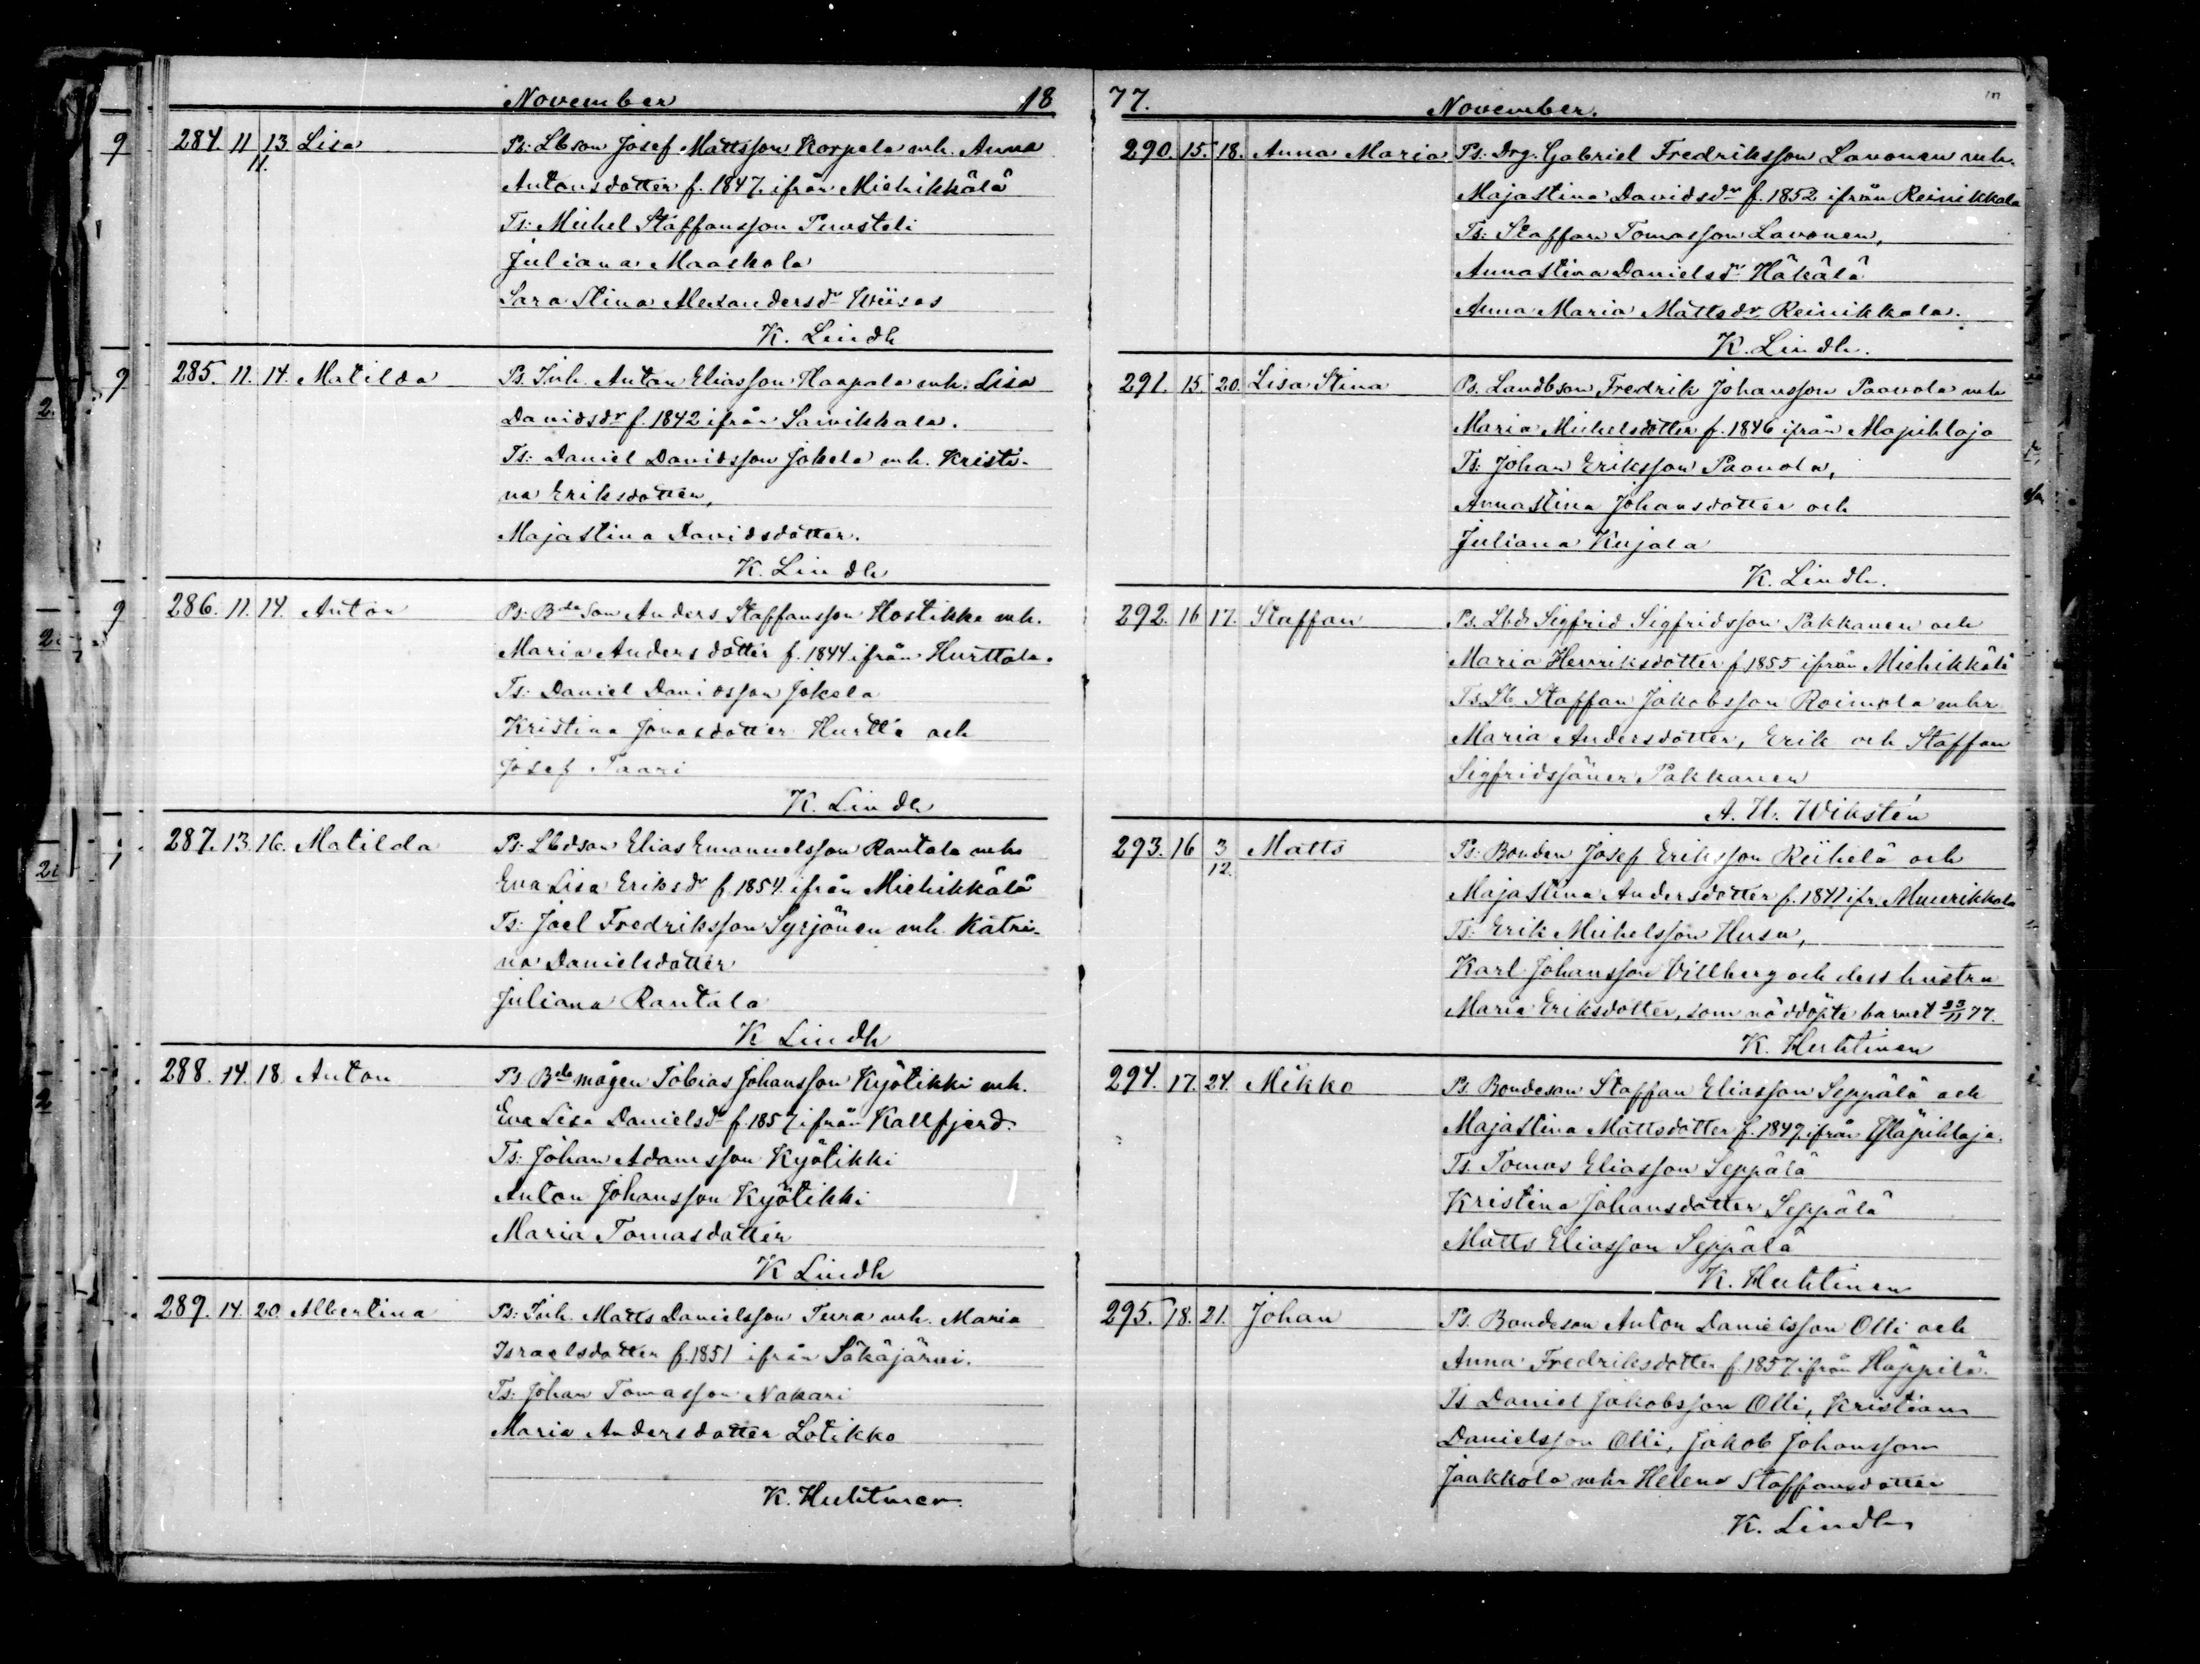 November 18
284. 11 13. Lisa Ps: Lbson Josef Mattsson Korpela mh. Anna
11.
Antonsdotter f. 1847. ifrån Miehikkälä
Ts: Michel Staffansson Purosteli
Juliana Maaskola
Sara Stina Alexandersdr
K. Lindh
285. 11. 14. Matilda Ps. Inh. Anton Eliasson Haapala mh. Lisa
Davidsdr f. 1842 ifrån Saivikkala.
Ts: Daniel Davidsson Jokela mh. Kristi-
na Eriksdotter,
Majastina Davidsdotter.
K. Lindh
286. 11. 14. Anton Ps: Bdeson Anders Staffansson Hostikka mh.
Maria Andersdotter f. 1844 ifrån Hurttala.
Ts: Daniel Davidsson Jokela
Kristina Jonasdotter Hurtta och
Josef Taari
K. Lindh
287. 13. 16. Matilda Ps: Lbdson Elias Emanuelsson Rantala mh
Eva Lisa Eriksdr f. 1854. ifrån Miehikkälä
Ts: Joel Fredriksson Syrjönen mh. Katri-
na Danielsdotter
Juliana Rantala
K Lindh
288. 14. 18. Anton Ps Bdemågen Tobias Johansson Kyötikki mh.
Eva Lisa Danielsdr f. 1857 ifrån Kallfjerd.
Ts: Johan Adamsson Kyötikki
Anton Johansson Kyötikki
Maria Tomasdotter
K Lindh
289. 14. 20. Albertina Ps: Inh. Matts Danielsson Tura mh. Maria
Israelsdotter f. 1851 ifrån Säkäjärvi.
Ts: Johan Tomasson Nakari
Maria Andersdotter Lotikko
K. Huhtinen
77. November.
290. 15. 18. Anna Maria Ps: Drg. Gabriel Fredriksson Lavonen mh.
Majastina Davidsdr f. 1852 ifrån Reinikkala
Ts: Staffan Tomasson Lavonen,
Annastina Danielsdr Häkälä
Anna Maria Mattsdr Reinikkala.
K. Lindh.
291. 15. 20. Lisa Stina Ps. Landbson Fredrik Johansson Paavola mh
Maria Michelsdotter f. 1846 ifrån Mäpihlaja
Ts: Johan Eriksson Paavola,
Annastina Johansdotter och
Juliana Kujala
K. Lindh.
292. 16 17. Staffan Ps. Lbd. Sigfrid Sigfridsson Pakkanen och
Maria Henriksdotter f 1855 ifrån Miehikkälä
Ts. Lb. Staffan Jakobsson Roimola mhr
Maria Andersdotter, Erik och Staffan
Sigfridssöner Pakkanen
A. H. Wikstén
293. 16 3 Matts Ps: Bonden Josef Eriksson Reihelä och
12.
Majastina Andersdotter f. 1841 ifr. Muurikkala
Ts: Erik Michelsson Husu,
Karl Johansson Villberg och dess hustru
Maria Eriksdotter, som nöddöpte barnet 23/11 77.
K. Huhtinen
294. 17. 24. Mikko Ps. Bondeson Staffan Eliasson Seppälä och
Majastina Mattsdotter f. 1849. ifrån Yläpihlaja.
Ts. Tomas Eliasson Seppälä
Kristina Johansdotter Seppälä
Matts Eliasson Seppälä
K. Huhtinen
295. 18. 21. Johan Ps. Bondeson Anton Danielsson Olli och
Anna Fredriksdotter f. 1857 ifrån Häppilä.
Ts Daniel Jakobsson Olli, Kristian
Danielsson Olli, Jakob Johansson
Jaakkola mhr Helena Staffansdotter
K. Lindh